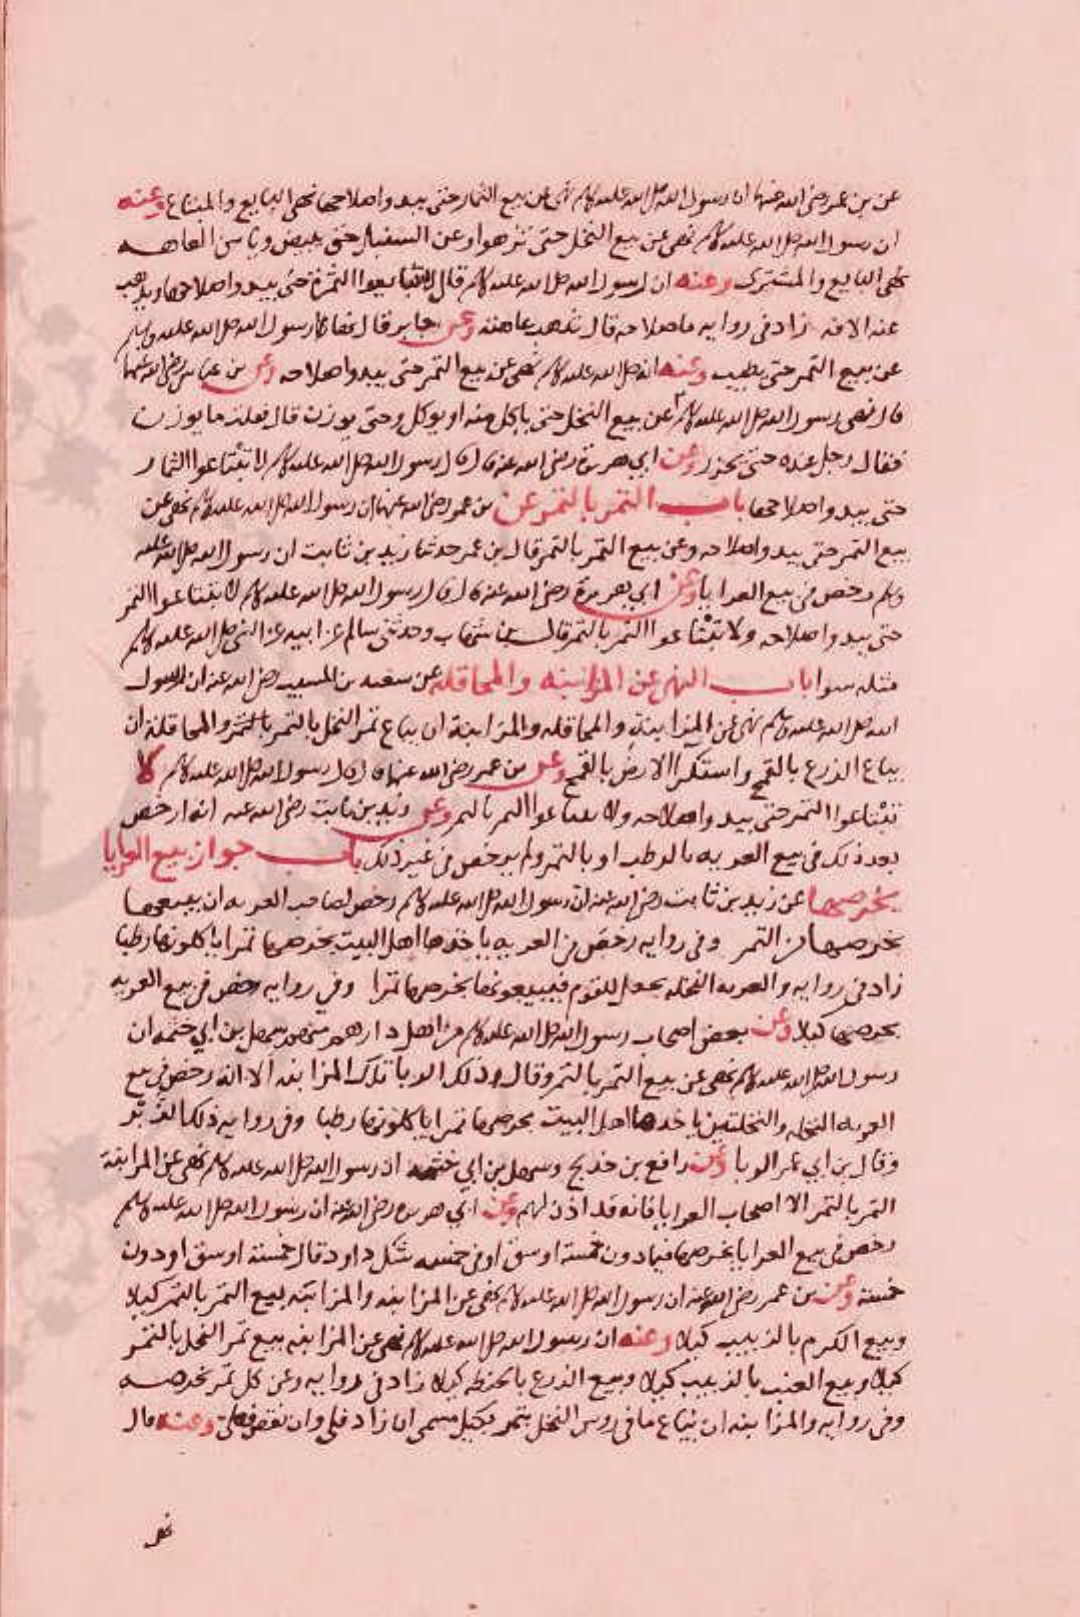 عن بن عمر رضي الله عنهما ان رسول الله صلى الله عليه وسلم نهى عن بيع الثمار حتى يبدو اصلاحها نهى البايع والمبتاع وعنه
ان رسول الله صلى الله عليه وسلم نهى عن بيع النخل حتى تزهوا وعن السنبل حتى يبيض ويامن العاهه
نهى البايع والمشتري وعنه ان رسول الله صلى الله عليه وسلم قال لا تبتاعوا الثمرة حتى يبدوا صلاحها ويذهب
عنه الافه زاد في روايه ما صلاحه قال تذهب عاهته وعن جابر قال نهانا رسول الله صلى الله عليه وسلم
عن بيع الثمر حتى يطيب وعنه انه صلى الله عليه وسلم نهى عن بيع الثمر حتى يبدوا صلاحه وعن بن عباس رضي الله عنهما
قال نهى رسول الله صلى الله عليه وسلم عن بيع النخل حتى ياكل منه او يوكل وحتى يوزن قال فقلت ما يوزن
فقال رجل عنده حتى يحزر وعن ابي هريرة رضي الله عنه قال قال رسول الله صلى الله عليه وسلم لا تبتاعوا الثمار
حتى يبدوا صلاحها باب الثمر بالتمر عن بن عمر رضي الله عنهما ان رسول الله صلى الله عليه وسلم نهى عن
بيع الثمر حتى يبدوا صلاحه وعن بيع الثمر بالتمر قال بن عمر حدثنا زيد بن ثابت ان رسول الله صلى الله عليه
وسلم رخص في بيع العرايا وعن ابي هريرة رضي الله عنه قال قال رسول الله صلى الله عليه وسلم لا تبتاعوا الثمر
حتى يبدو اصلاحه ولا تبتاعوا الثمر بالتمر قال بن شهاب وحدثني سالم عن ابيه عن النبي صلى الله عليه وسلم
مثله سوا باب النهي عن المزابنه والمحاقله عن سعيد بن المسيب رضي الله عنه ان رسول
الله صلى الله عليه وسلم نهى عن المزابنة والمحاقله والمزابنة ان يباع ثمر النخل بالتمر والمحاقلة ان
يباع الزرع بالقمح واستكرا الارض بالقمح وعن بن عمر رضي الله عنهما قال قال رسول الله صلى الله عليه وسلم لا
تبتاعوا الثمر حتى يبدو اصلاحه ولا تبتاعوا الثمر بالتمر وعن زيد بن ثابت رضي الله عنه انه ارخص
بعد ذلك في بيع العريه بالرطب او بالتمر ولم يرخص في غير ذلك باب جواز بيع العرايا
بخرصها عن زيد بن ثابت رضي الله عنه ان رسول الله صلى الله عليه وسلم رخص لصاحب العريه ان يبيعها
بخرصها من التمر وفي روايه رخص في العريه ياخذها اهل البيت بخرصها تمرا ياكلونها رطبا
زاد في روايه والعريه النخله يجعل للقوم فيبيعونها بخرصها تمرا وفي روايه رخص في بيع العريه
بخرصها كيلا وعن بعض اصحاب رسول الله صلى الله عليه وسلم من اهل دارهم منهم سهل بن ابي حثمه ان
رسول الله صلى الله عليه وسلم نهى عن بيع الثمر بالتمر وقال ذلك الربا تلك المزابنه الا انه رخص في بيع
العريه النخله والنخلتين ياخذها اهل البيت بخرصها تمرا ياكلونها رطبا وفي روايه ذلك الزبن
وقال بن ابي عمر الربا وعن رافع بن خديج وسهل بن ابي حثمه ان رسول الله صلى الله عليه وسلم نهى عن المزابنة
الثمر بالتمر الا اصحاب العرايا فانه قد اذن لهم وعن ابي هريره رضي الله عنه ان رسول الله صلى الله عليه وسلم
رخص في بيع العرايا بخرصها فيما دون خمسة اوسق او في خمسه شك داود قال خمسة اوسق او دون
خمسة وعن بن عمر رضي الله عنه ان رسول الله صلى الله عليه وسلم نهى عن المزابنه والمزابنه بيع الثمر بالتمر كيلا
وبيع الكرم بالزبيب كيلا وعنه ان رسول الله صلى الله عليه وسلم نهى عن المزابنه بيع ثمر النخل بالتمر
كيلا وبيع العنب بالزبيب كيلا وبيع الزرع بالحنطه كيلا زاد في روايه وعن كل ثمر بخرصه
وفي روايه والمزابنه ان يباع ما في روس النخل بتمر بكيل مسمى ان زاد فلي وان نقص فعلي وعنه قال
نهى